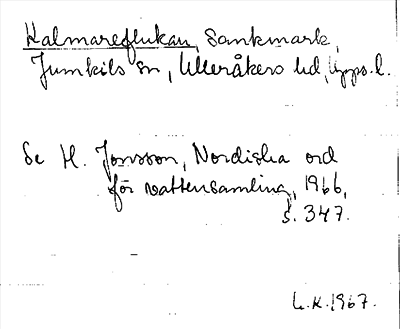 Halmareflukan, Sankmark,
Jumkils sn, Ulleråkers hd, Upps. l.
Se H. Jonsson, Nordiska ord
för vattensamling, 1966,
s. 347.
L.K. 1967.